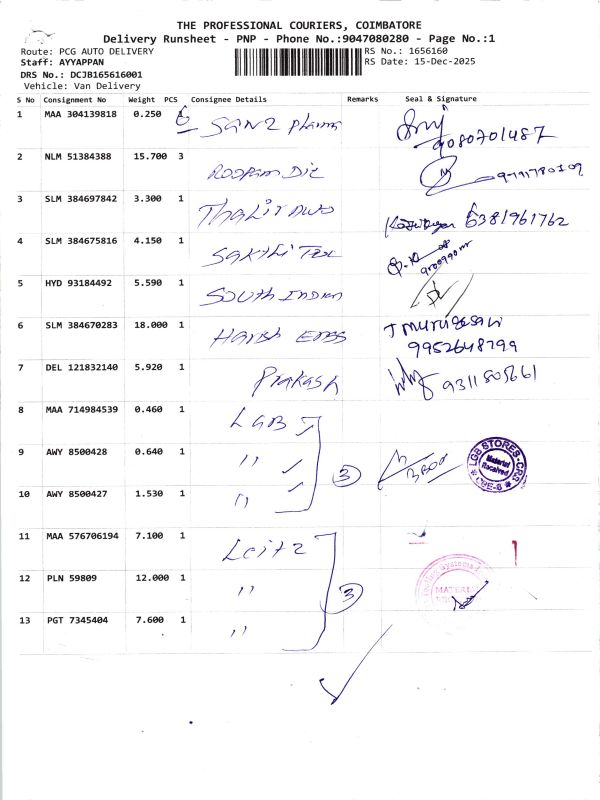 THE PROFESSIONAL COURIERS, COIMBATORE
Delivery Runsheet - PNP - Phone No.:9047080280 - Page No.:1
Route: PCG AUTO DELIVERY
RS No.: 1656160
Staff: AYYAPPAN
RS Date: 15-Dec-2025
DRS No.: DCJB165616001
Vehicle: Van Delivery
S No Consignment No Weight PCS Consignee Details Remarks Seal & Signature
1 MAA 304139818 0.250 SANZ Pharma
9080701487
2 NLM 51384388 15.700 3
3 SLM 384697842 3.300 1 6381961762
4 SLM 384675816 4.150 1 SAKTHI
5 HYD 93184492 5.590 1 SOUTH INDIAN
6 SLM 384670283 18.000 1 HARISH
J MURUGESAN
9952648799
7 DEL 121832140 5.920 1 Prakash
8 MAA 714984539 0.460 1 LGB
9 AWY 8500428 0.640 1 " 3
LGB STORES-CRS
Material
Received
CBE-6
10 AWY 8500427 1.530 1 "
11 MAA 576706194 7.100 1 Leitz
12 PLN 59809 12.000 1 " 3
MATERIAL
13 PGT 7345404 7.600 1 "